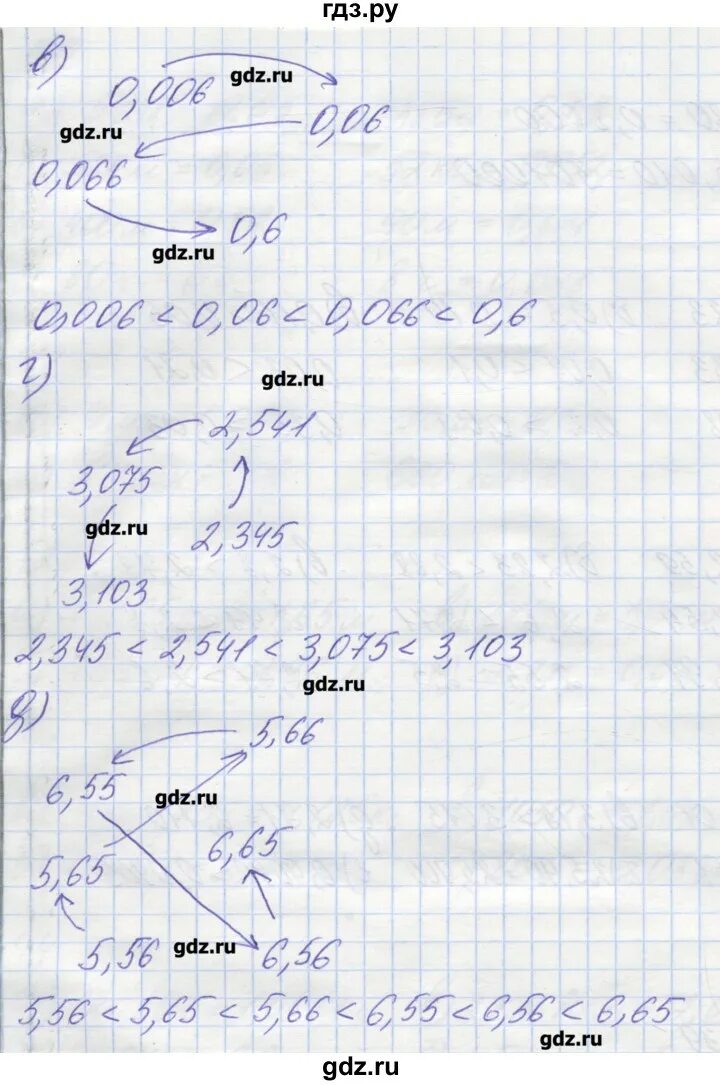 гдз.ру
в)
0,006
gdz.ru
0,06
gdz.ru
0,066
0,6
gdz.ru
0,006 < 0,06 < 0,066 < 0,6
г)
gdz.ru
2,541
3,075
gdz.ru
2,345
3,103
2,345 < 2,541 < 3,075 < 3,103
gdz.ru
д)
5,66
6,55
gdz.ru
6,65
5,65
5,56
gdz.ru
6,56
5,56 < 5,65 < 5,66 < 6,55 < 6,56 < 6,65
gdz.ru
gdz.ru